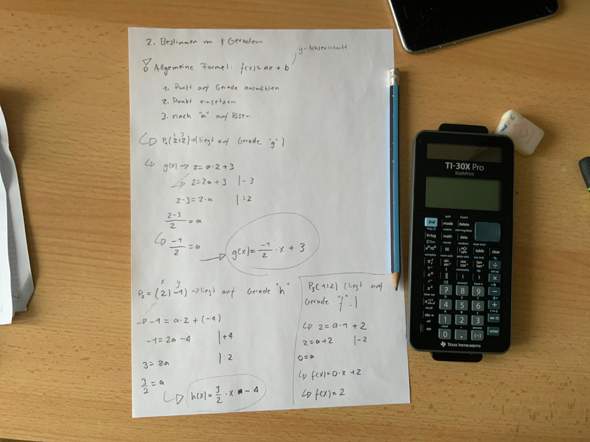 2. Bestimmen von Geraden
y-Achsenabschnitt
Allgemeine Formel: f(x) = ax + b
1. Punkt auf Gerade auswählen
2. Punkt einsetzen
3. nach "a" auflösen
P₁(2|2) → liegt auf Gerade "g"
g(x) → 2 = a·2+3
2 = 2a + 3 | -3
2-3 = 2·a | :2
2-3/2 = a
-1/2 = a
g(x) = -1/2 · x + 3
x y
P₂ = (2|-1) → liegt auf Gerade "h"
-1 = a·2 + (-4)
-1 = 2a - 4 | +4
3 = 2a | :2
3/2 = a
h(x) = 3/2 · x - 4
P₃(1|2) liegt auf
Gerade "f"
2 = a·1 + 2
2 = a+2 | -2
0 = a
f(x) = 0·x + 2
f(x) = 2
TI-30X Pro
MathPrint
TEXAS INSTRUMENTS